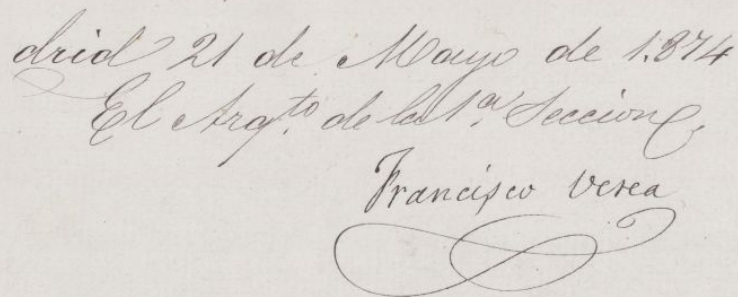 drid 21 de Mayo de 1.874
El Arqto. de la 1a. Seccion,
Francisco Verea